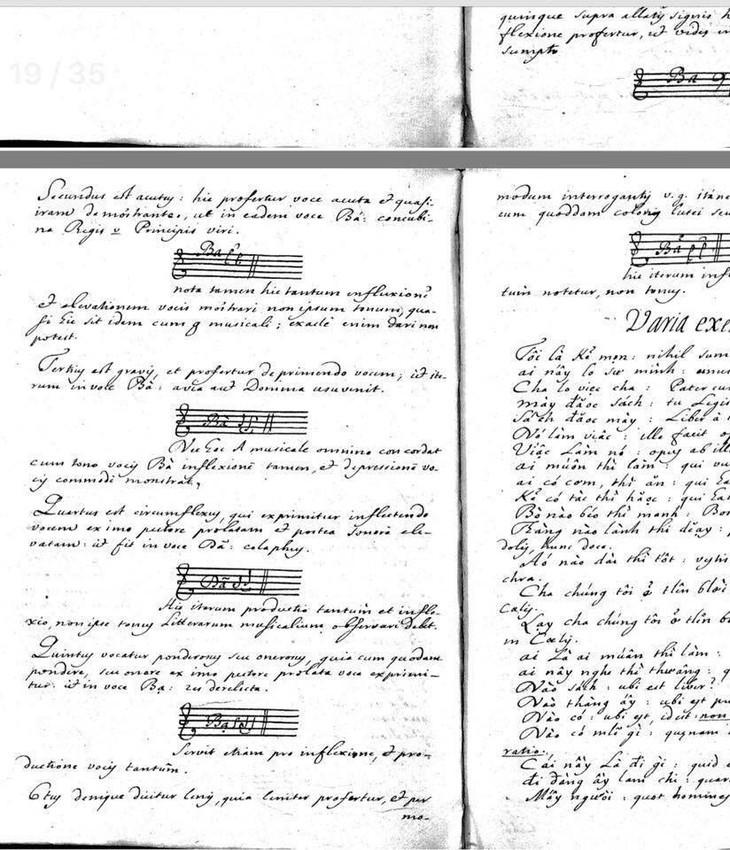 19 / 35
quinque supra allatis signis
flexione profertur, ut vides in
sumpto
Ba
Secundus est acutus: hic profertur voce acuta et quasi
iram demonstrante, ut in eadem voce Bá: concubi-
na Regis v Principis viri.
Bá
nota tamen hic tantum influxionē
et elevationem vocis mostrari non ipsum tonum, qua-
si hic sit idem cum musicali; exacte enim dari non
potest.
Tertius est gravis, et profertur deprimendo vocem; ut ite-
rum in voce Bà: avia aut Domina usuvenit.
Bà
Nec hoc A musicale omnino concordat
cum tono vocis Bà inflexionē tamen, et depressionē vo-
cis commodè monstrat,
Quartus est circumflexus, qui exprimitur inflectendo
vocem ex imo pectore prolatam et postea sonorè ele-
vatam: ut fit in voce Bã: colaphus.
Bã
Hic iterum productio tantum et infle-
xio, non ipse tonus Litterarum musicalium observari debet.
Quintus vocatur ponderosus seu onerosus, quia cum quodam
pondere, seu onere ex imo pectore prolata voce exprimi-
tur: ut in voce Bạ: res derelicta.
Bạ
Servit etiam pro inflexione, et pro-
ductione vocis tantum.
6tus denique dicitur lenis, quia leniter profertur, et per
mo-
modum interrogantis v.g.
cum quoddam coloris lutei
Bả
hic iterum
tum notetur, non tonus.
Varia exe
Tôi là kẻ mọn: nihil sum
ai nấy lo sự mình: unus
Cha lo việc cha: Pater
mày đăọc sách: tu Legis
sách đăọc mày: Liber à
Nó làm việc: ille facit
Việc làm nó: opus ab ille
ai muốn thì làm: qui
ai có cơm, thì ăn: qui
Kẻ có tài thì hăọc: qui
Bò nào béo thì mạnh: Bos
Thàng nào lành thì dăọy:
dolis, hunc doce.
Aó nào dài thì tốt: vestis
chra.
Cha chúng tôi ở tlên blời
Cælis.
Lạy cha chúng tôi ở tlên
in Cælis.
ai Là ai muốn thì làm:
ai nấy nghe thì thương:
Nào sách: ubi est liber?
Nào thàng ấy: ubi est
Nào có: ubi est, id est non
Nào có mlẽ gì: quænam
ratio.
Cái này Là đí gì: quid
đi đàng ấy làm chi:
Mấy người: quot homines